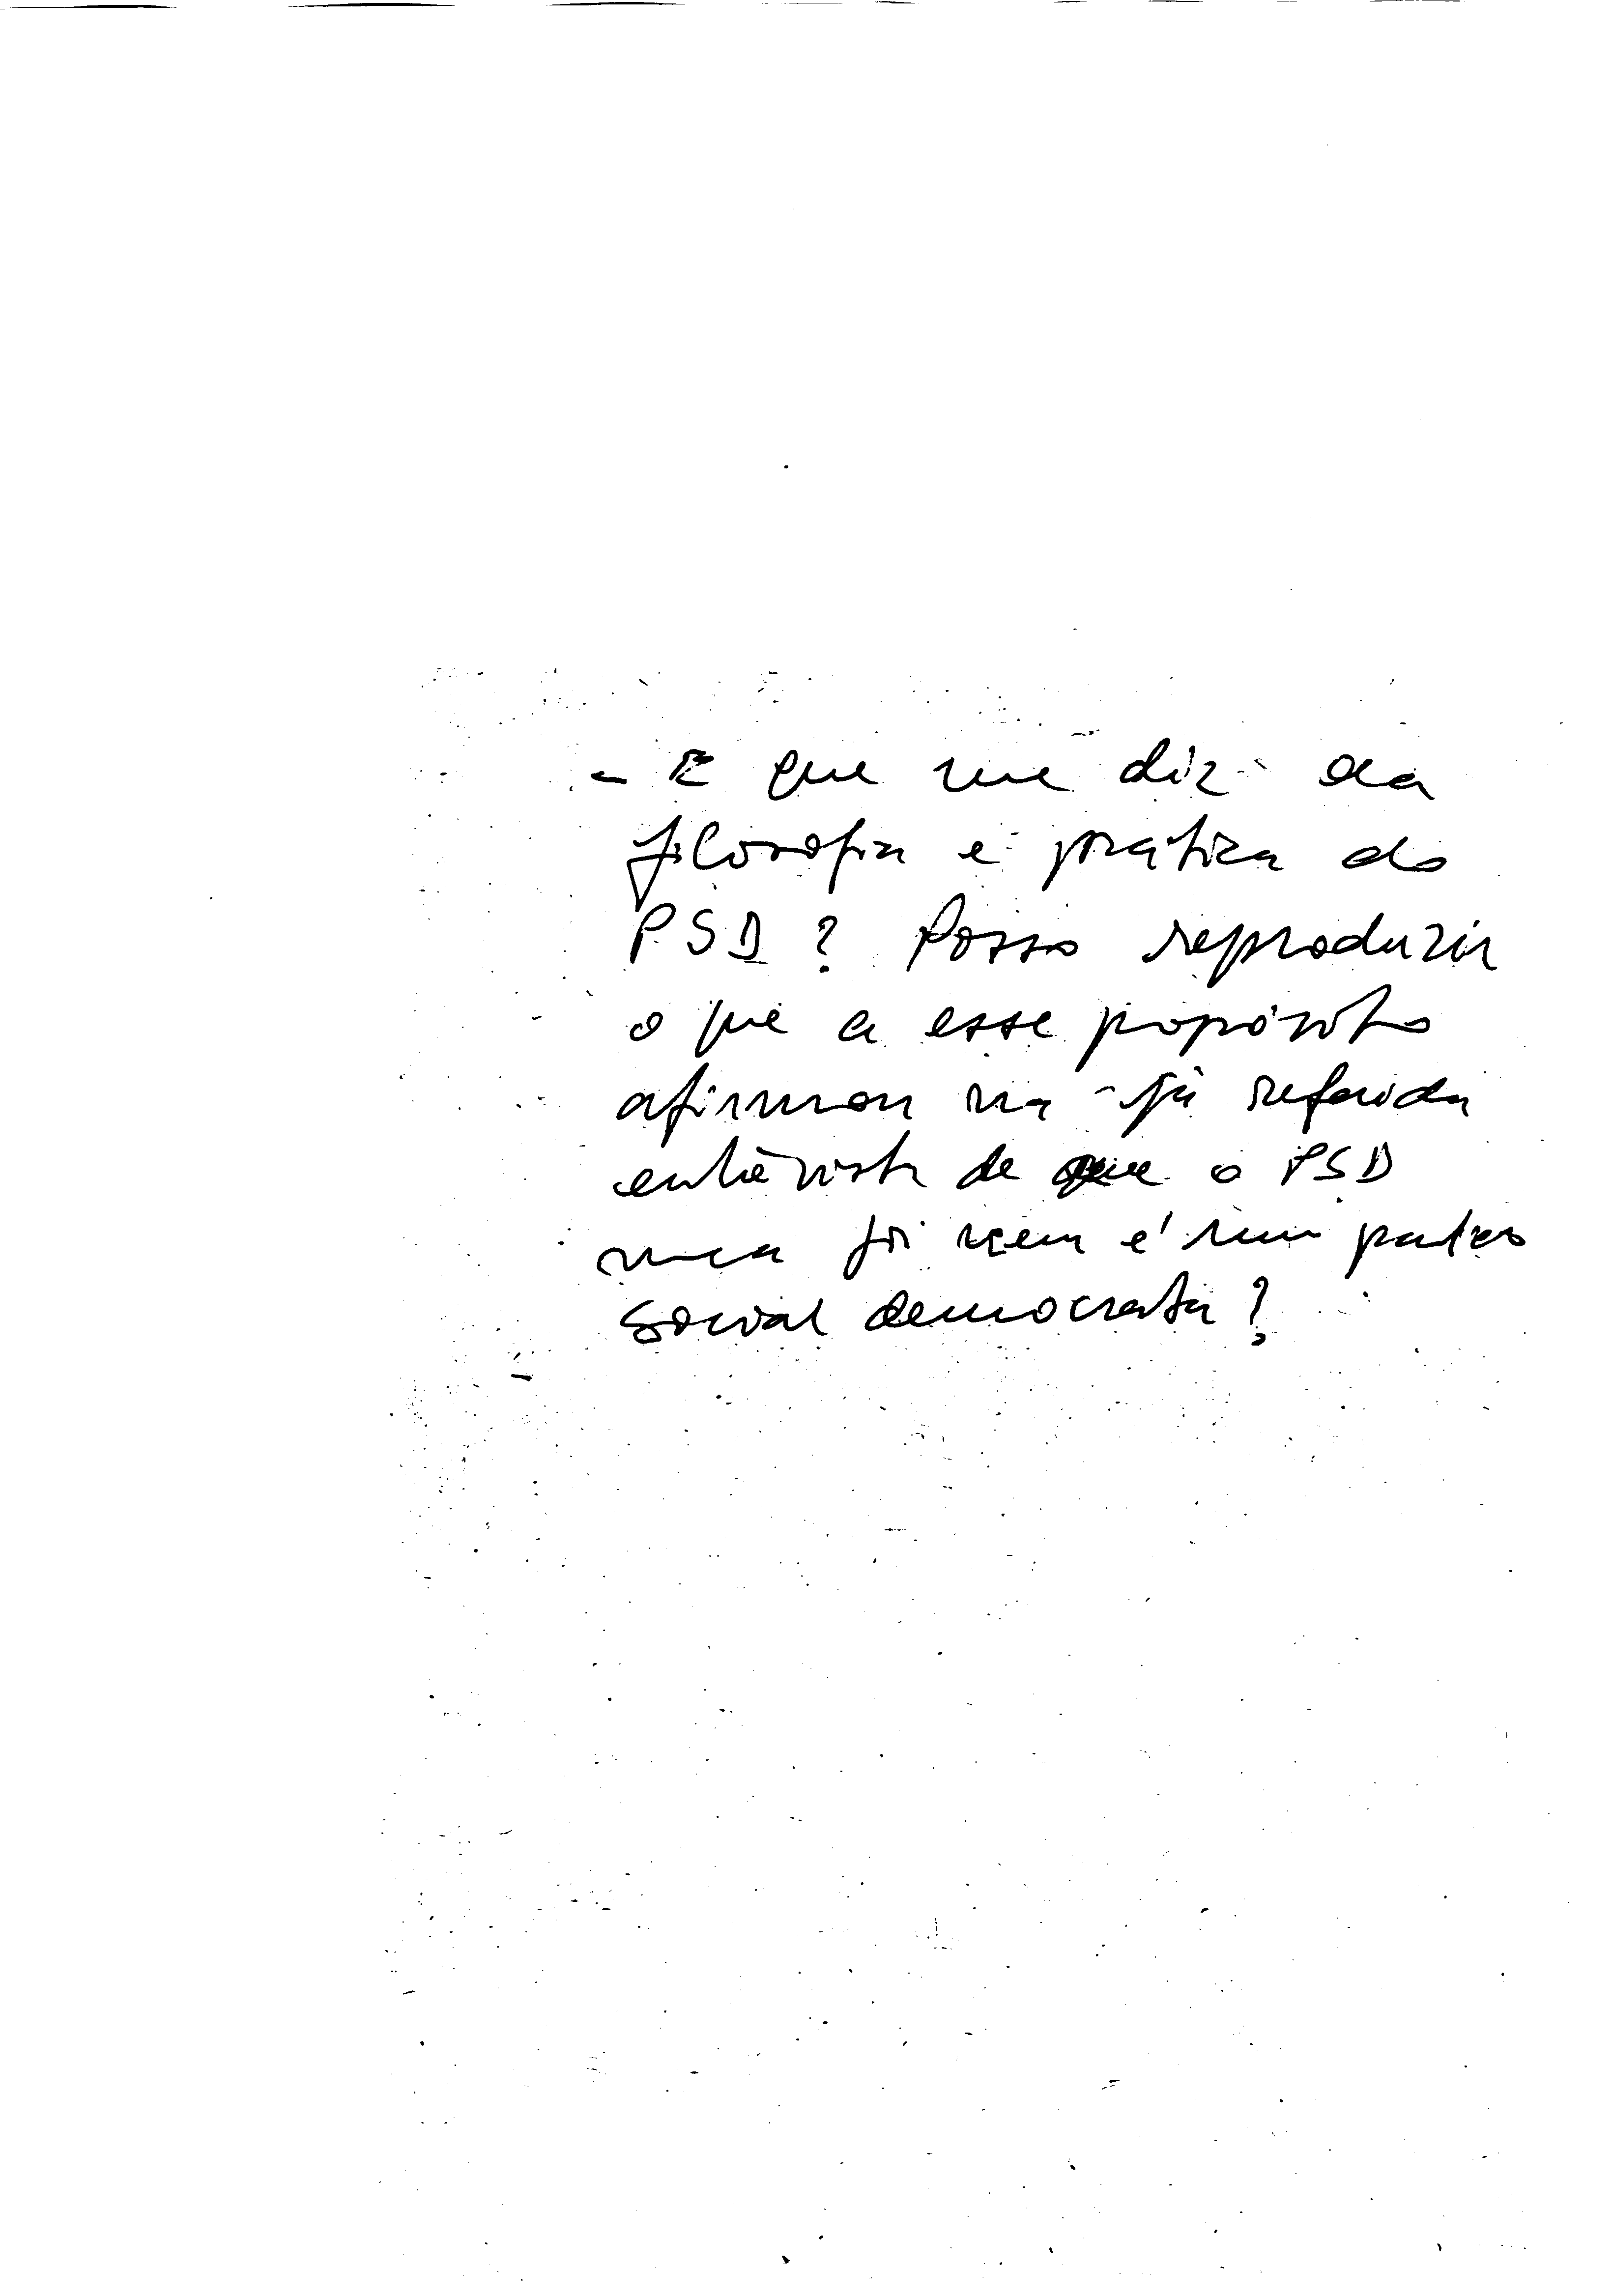 - E que me diz da
filosofia e prática do
PSD? Posso reproduzir
o que a esse propósito
afirmou na já referida
entrevista de que o PSD
nunca foi nem é um partido
social democrata?